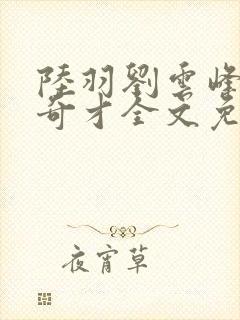 陸羽劉雲峰
奇才全文免
夜宵草